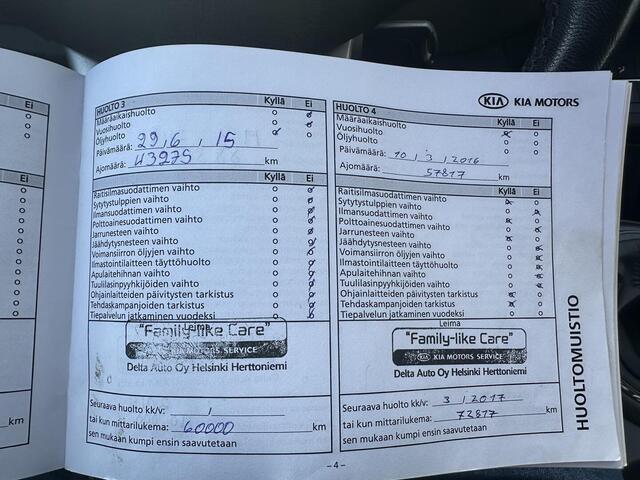 Ei
km
HUOLTO 3 Kyllä Ei
Määräaikaishuolto
Vuosihuolto
Öljyhuolto
Päivämäärä: 29, 6, 15
Ajomäärä: 43275 km
Kyllä Ei
Raitisilmasuodattimen vaihto
Sytytystulppien vaihto
Ilmansuodattimen vaihto
Polttoainesuodattimen vaihto
Jarrunesteen vaihto
Jäähdytysnesteen vaihto
Voimansiirron öljyjen vaihto
Ilmastointilaitteen täyttöhuolto
Apulaitehihnan vaihto
Tuulilasinpyyhkijöiden vaihto
Ohjainlaitteiden päivitysten tarkistus
Tehdaskampanjoiden tarkistus
Tiepalvelun jatkaminen vuodeksi
Leima
"Family-like Care"
KIA MOTORS SERVICE
Delta Auto Oy Helsinki Herttoniemi
Seuraava huolto kk/v: /
tai kun mittarilukema: 60000 km
sen mukaan kumpi ensin saavutetaan
KIA KIA MOTORS
HUOLTO 4 Kyllä Ei
Määräaikaishuolto
Vuosihuolto
Öljyhuolto
Päivämäärä: 10 / 3 / 2016
Ajomäärä: 57817 km
Kyllä Ei
Raitisilmasuodattimen vaihto
Sytytystulppien vaihto
Ilmansuodattimen vaihto
Polttoainesuodattimen vaihto
Jarrunesteen vaihto
Jäähdytysnesteen vaihto
Voimansiirron öljyjen vaihto
Ilmastointilaitteen täyttöhuolto
Apulaitehihnan vaihto
Tuulilasinpyyhkijöiden vaihto
Ohjainlaitteiden päivitysten tarkistus
Tehdaskampanjoiden tarkistus
Tiepalvelun jatkaminen vuodeksi
Leima
"Family-like Care"
KIA KIA MOTORS SERVICE
Delta Auto Oy Helsinki Herttoniemi
Seuraava huolto kk/v: 3 / 2017
tai kun mittarilukema: 72817 km
sen mukaan kumpi ensin saavutetaan
HUOLTOMUISTIO
- 4 -